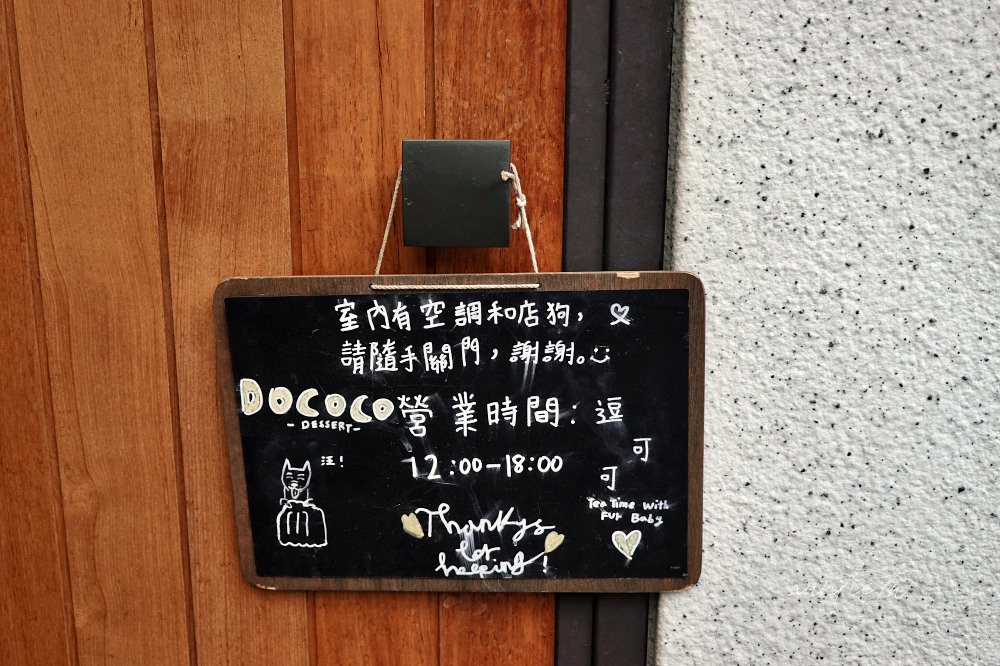 室內有空調和店狗，
請隨手關門，謝謝。
DOCOCO
- DESSERT-
營業時間：
12:00-18:00
逗
可
可
汪！
Tea Time with
Fur Baby
Thankys
for
helping!